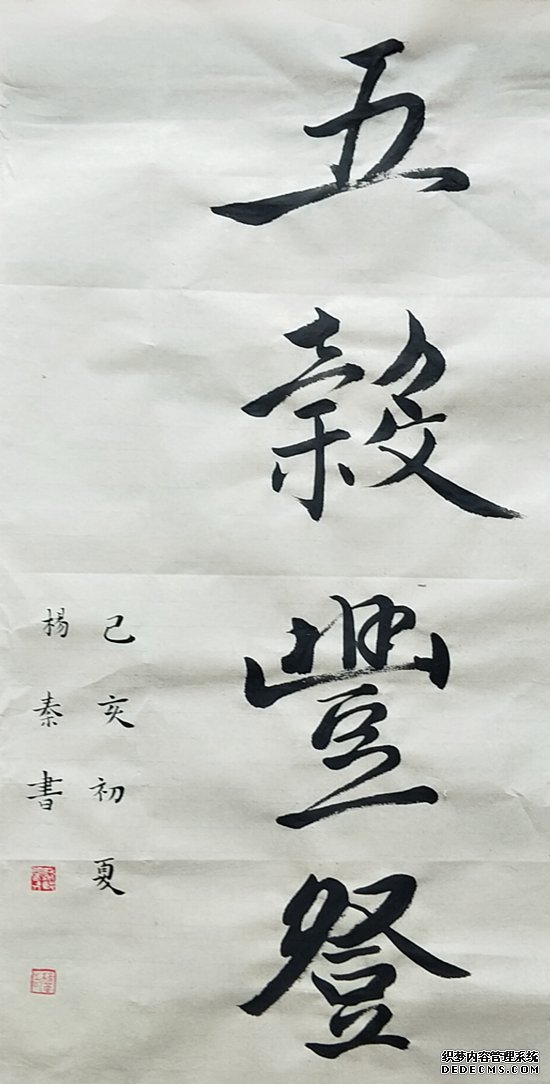 五穀豐登
己亥初夏
楊秦書
织梦内容管理系统
DEDECMS.COM